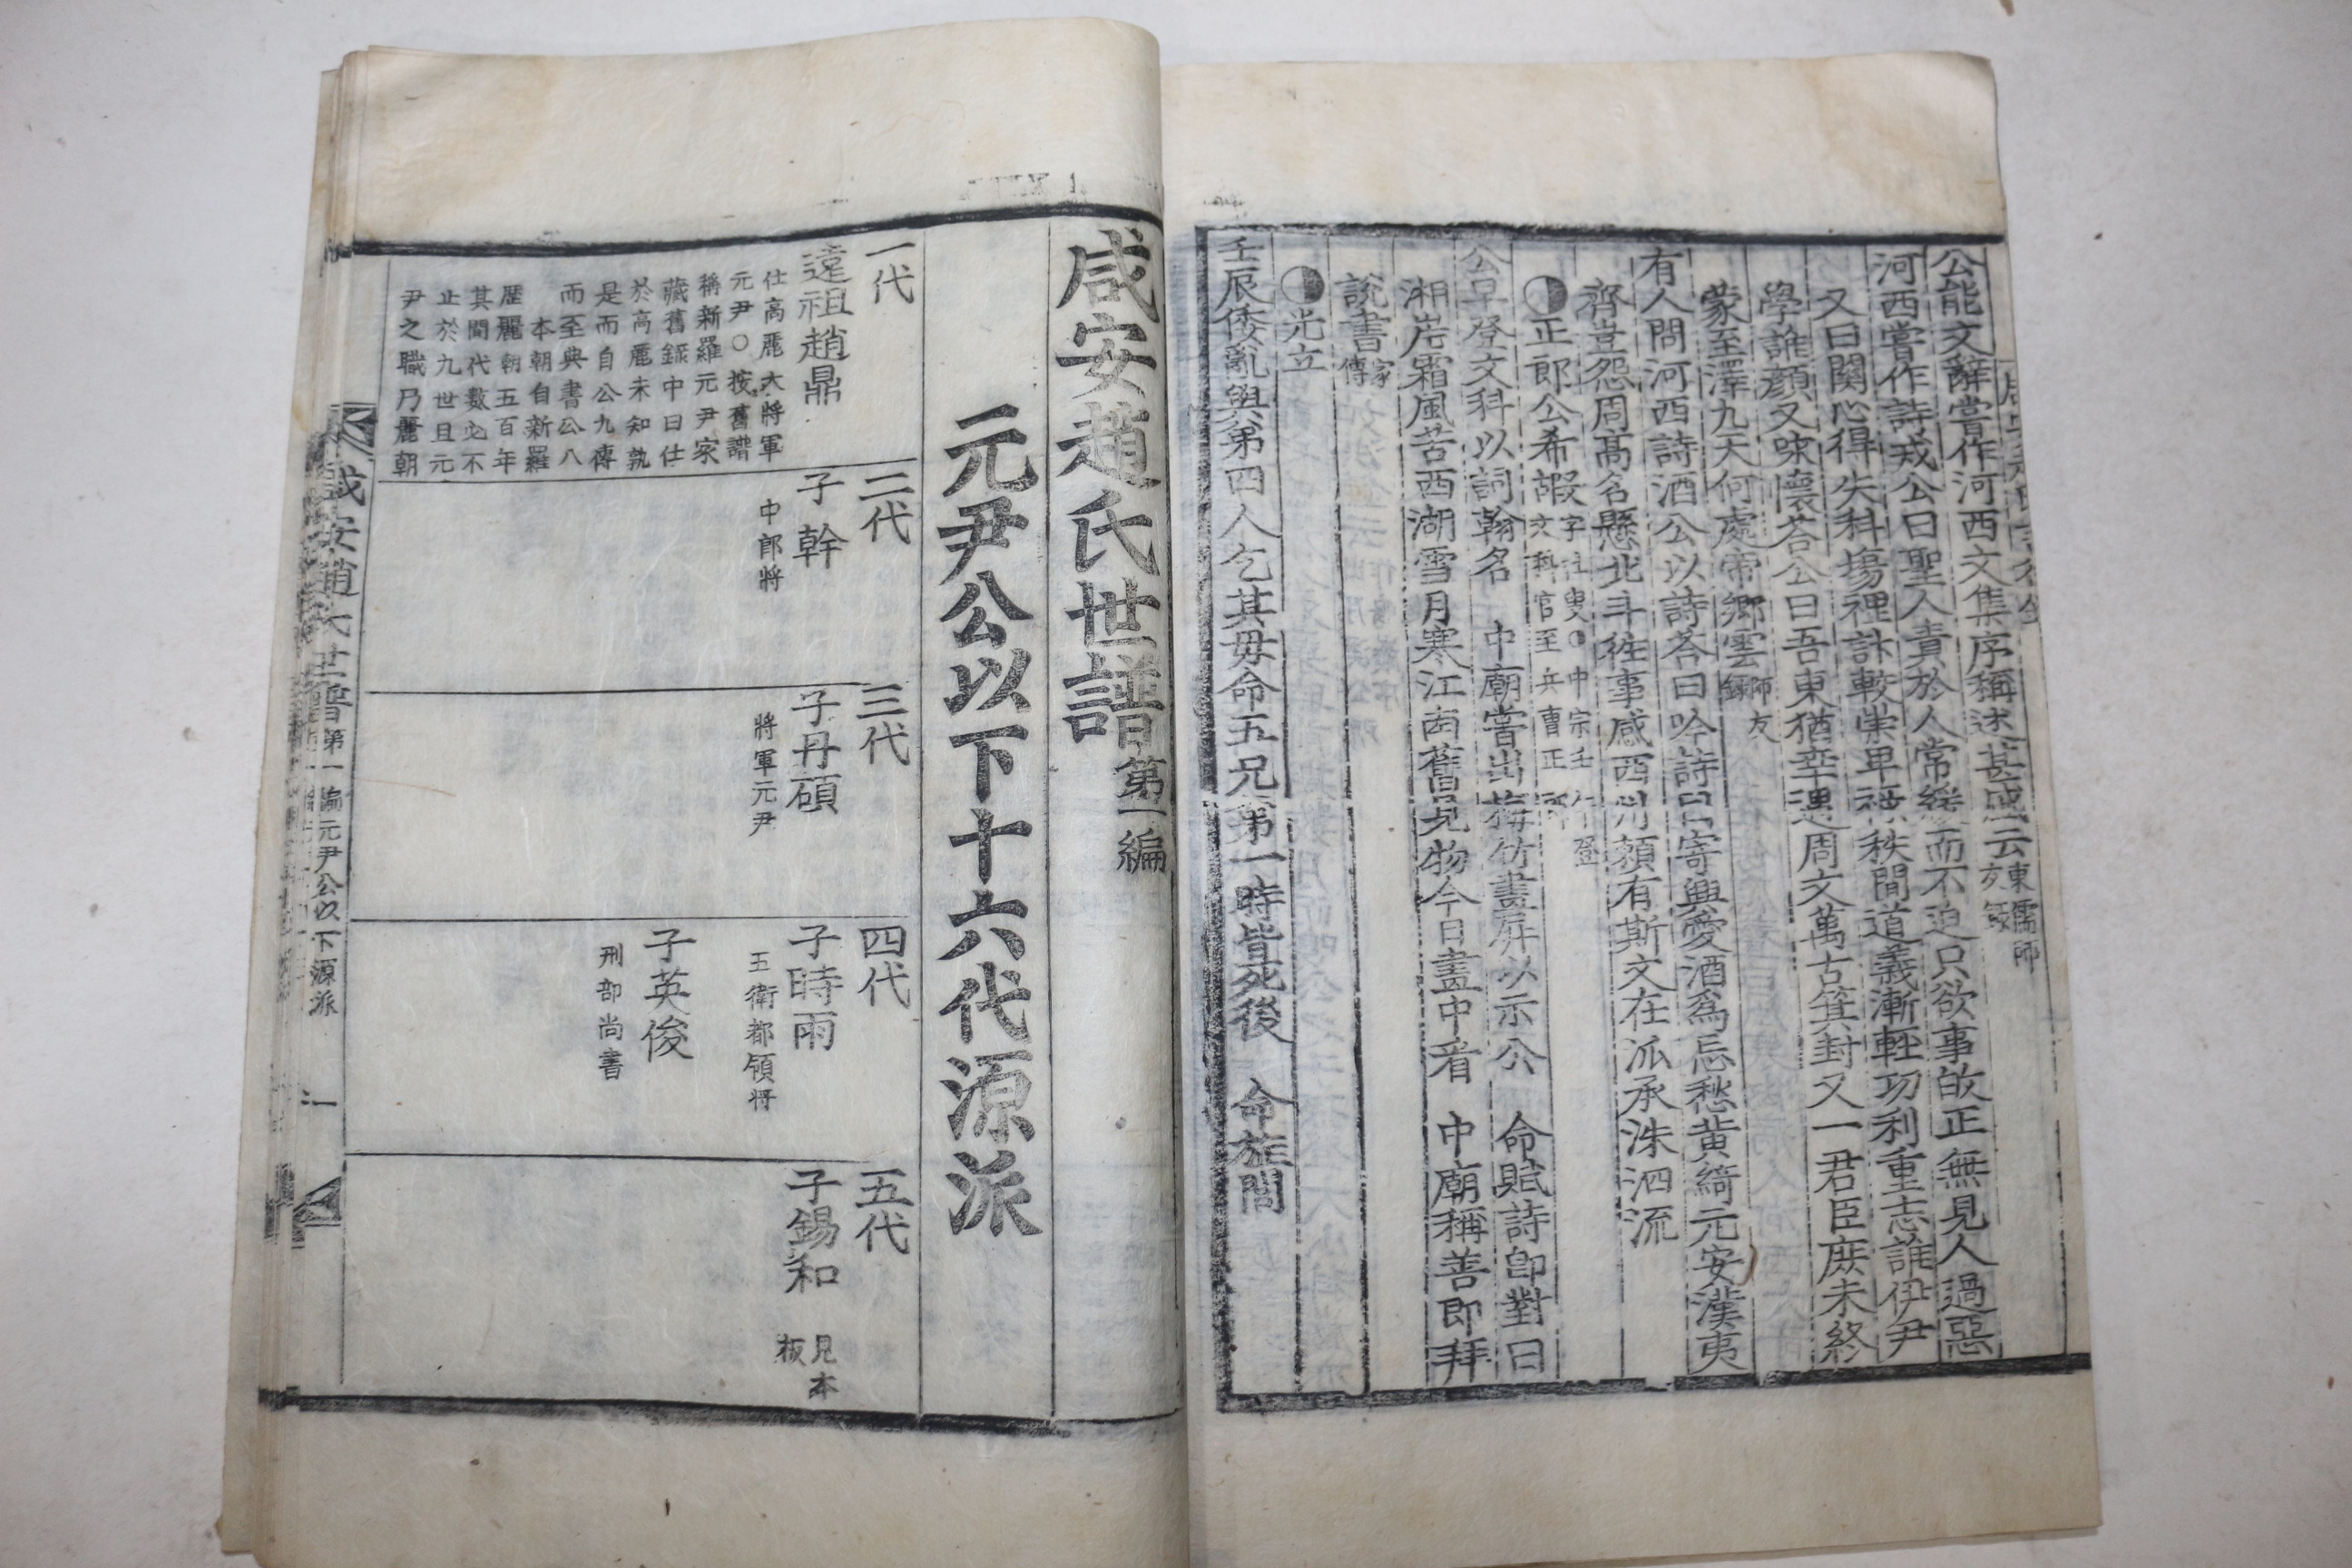 公能文辭嘗作河西文集序稱述甚盛云東儒師友錄
河西嘗作詩戒公曰聖人責於人常緩而不迫只欲事故正無見人過惡
又曰關心得失科塲裡計較崇卑秩間道義漸輕功利重志誰伊尹
學誰顏又味懷答公曰吾東猶幸遇周文萬古箕封又一君臣庶未終
蒙至澤九天何處帝鄉雲師友錄
有人問河西詩酒公以詩答曰吟詩曰寄興愛酒爲忘愁黄綺元安漢夷
齊豈怨周高名懸北斗徃事感西州頼有斯文在派承洙泗流
正郎公希嘏字
文科官至兵曹正郎
公早登文科以詞翰名 中廟嘗出梅竹畫屛以示公 命賦詩卽對曰
湘岸霜風苦西湖雪月寒江南舊見物今日畫中看 中廟稱善即拜
說書家傳
光立
壬辰倭亂與弟四人乞其毋命五兄弟一時皆死後 命旌閭
咸安趙氏世譜第一編
元尹公以下十六代源派
一代
遠祖趙鼎
仕高麗大將軍
元尹○按舊譜
稱新羅元尹家
藏舊錄中曰仕
於高麗未知孰
是而自公九傳
而至典書公八
本朝自新羅
歷麗朝五百年
其間代數必不
止於九世且元
尹之職乃麗朝
二代
子幹
中郎將
三代
子丹碩
將軍元尹
四代
子時雨
五衛都領將
子英俊
刑部尚書
五代
子錫和
見本
板
咸安趙氏世譜第一編元尹公以下源派 一